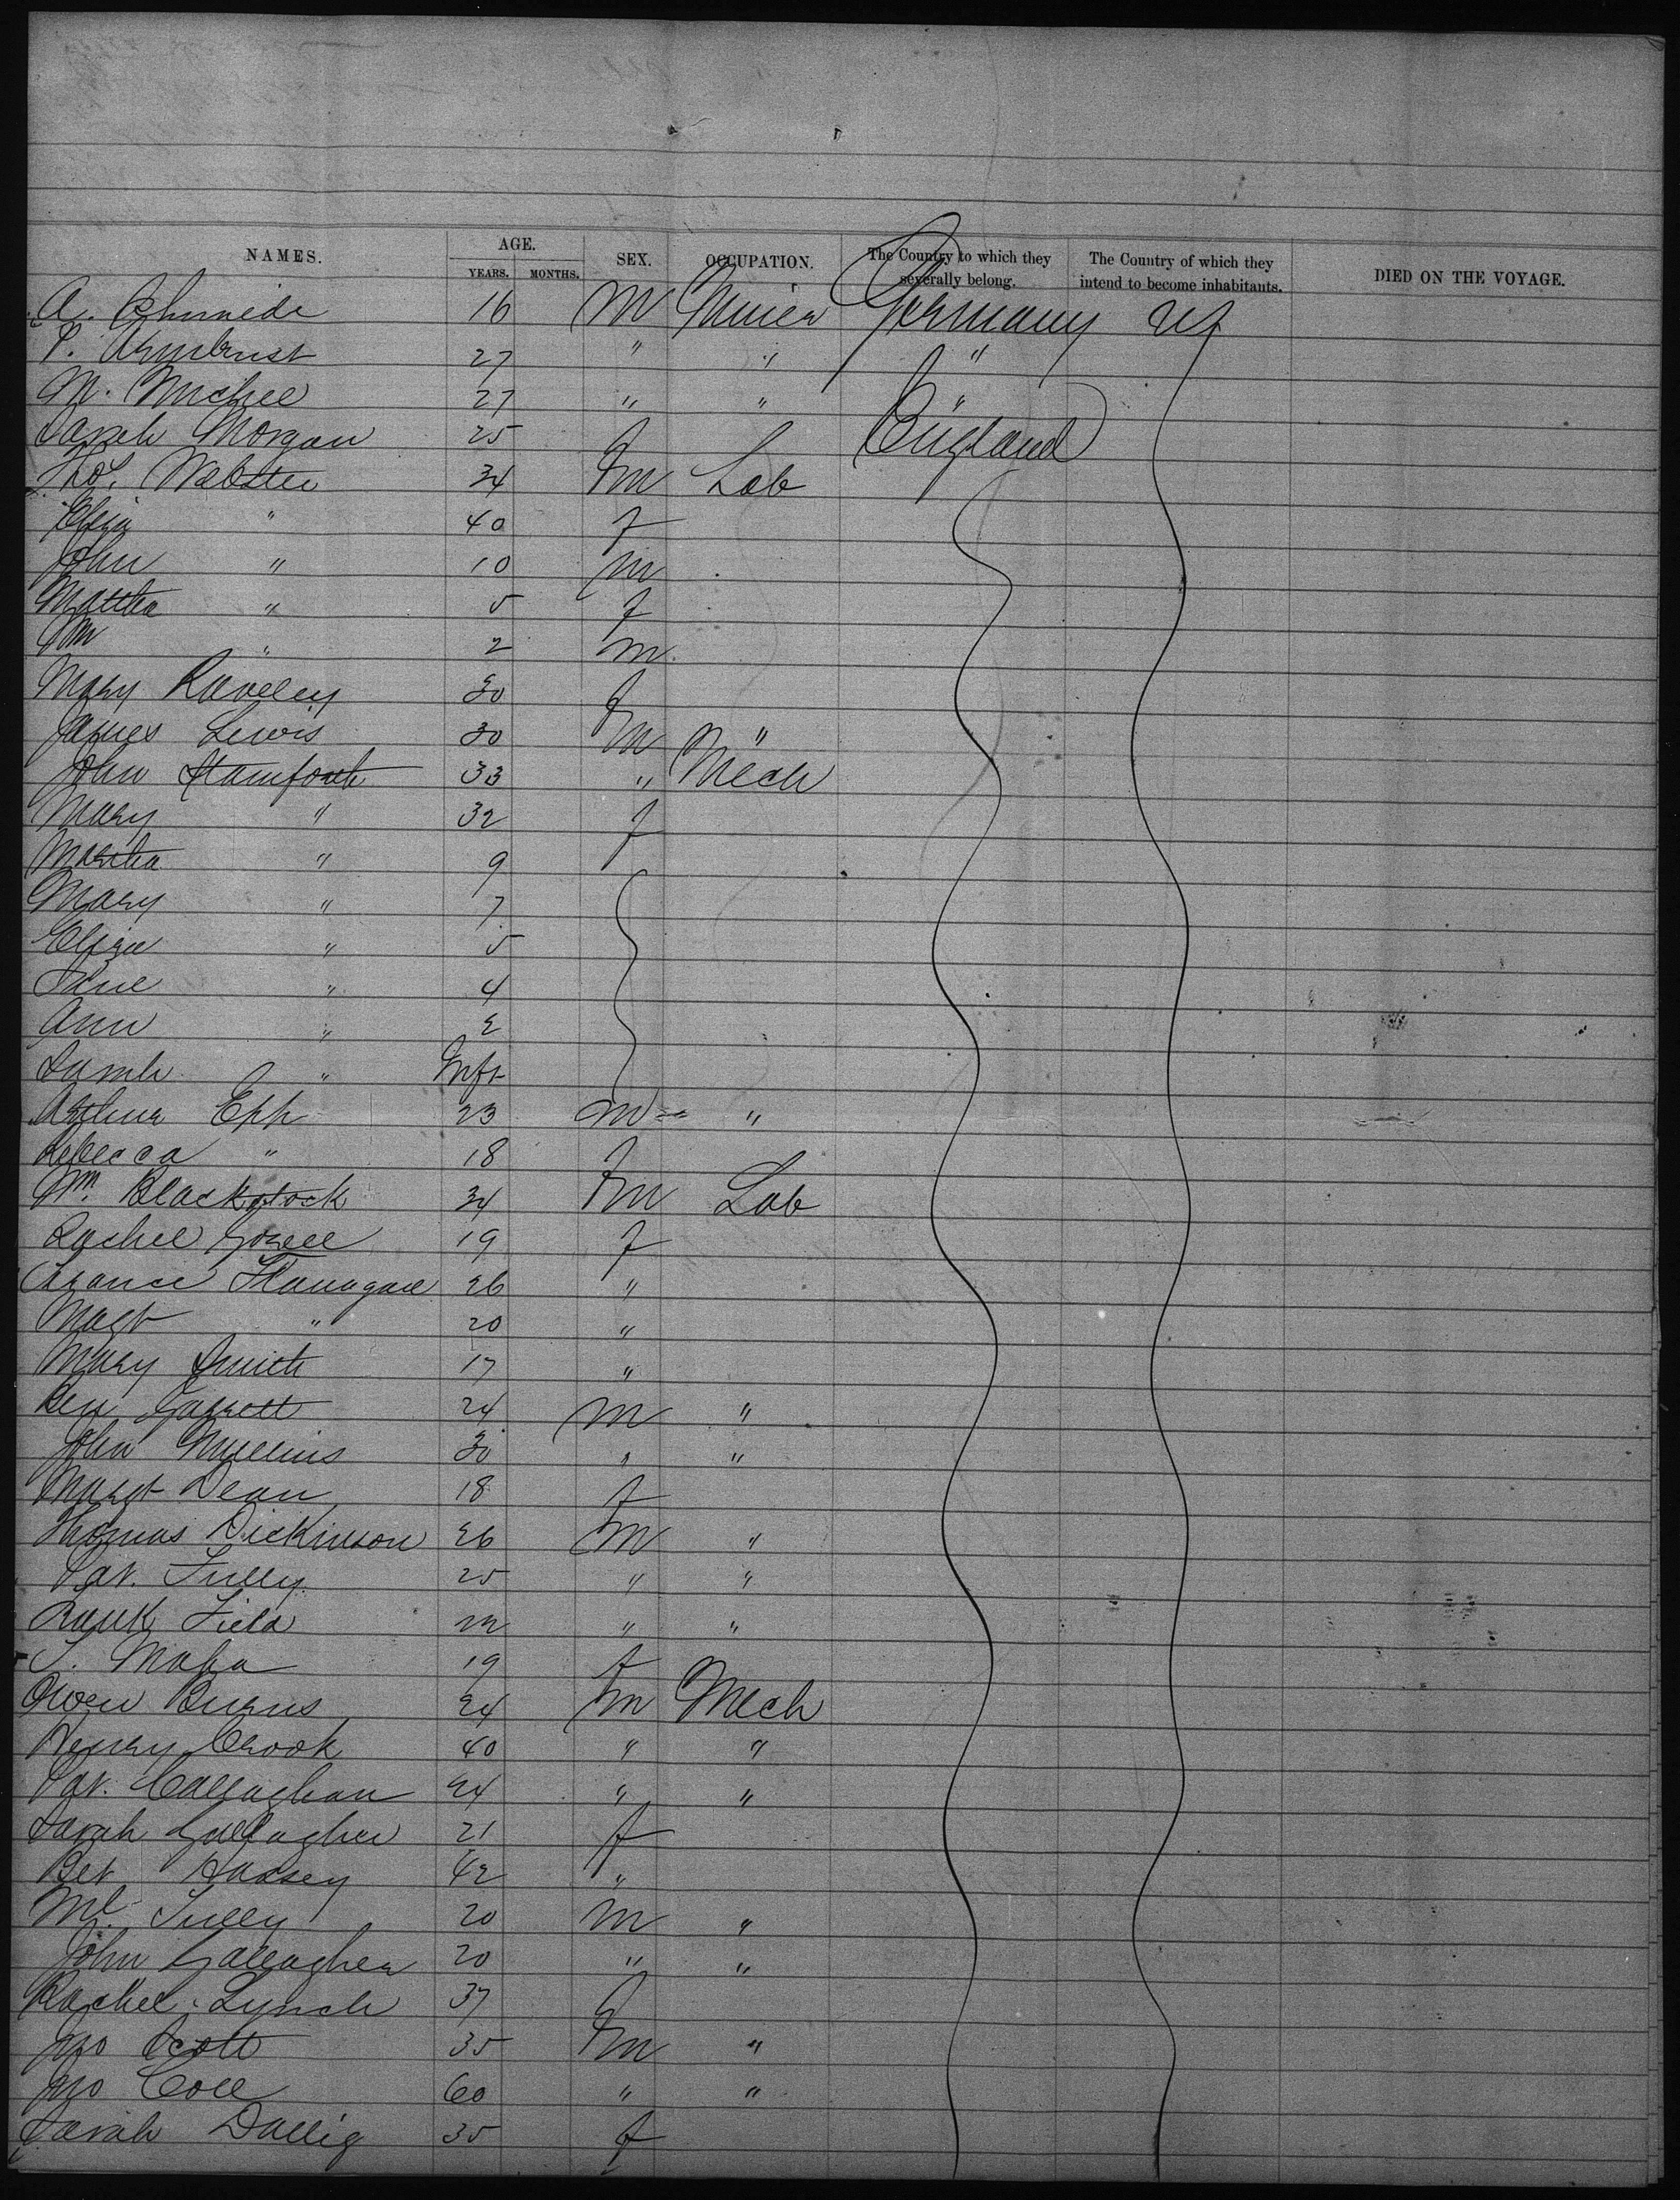 NAMES. AGE. SEX. OCCUPATION. The Country to which they severally belong. The Country of which they intend to become inhabitants. DIED ON THE VOYAGE.
YEARS. MONTHS.
A. 16 m Miner Germany
P. Armbrust 27 " " "
M. Michel 27 " " "
Sarah Morgan 25 f England
Thos. Webster 34 m Lab
Eliza " 40 f
John " 10 m
Martha " 5 f
Wm " 2 m
Mary Raveley 30 f
James Lewis 30 m "
John Stamforth 33 " Mech
Mary " 32 f
Martha " 9
Mary " 7
Eliza " 5
Jane " 4
Ann " 2
Sarah " Inft
Arthur Epp 23 m "
Rebecca " 18 f
Wm. Blackstock 34 m Lab
Rachel 19 f
Flanagan 26 "
Magt " 20 "
Mary Smith 17 "
Ben Garrett 24 m "
John Mullins 30 " "
Margt Dean 18 f
Thomas Dickinson 26 m "
Pat. Tully 25 " "
Frank Field 22 " "
19 f
Owen Burns 24 m Mech
Henry Crook 40 " "
Pat. Callaghan 24 " "
Sarah Gallagher 21 f
Bet Hassey 42 "
Ml. Tully 20 m "
John Gallagher 20 " "
Rachel Lynch 37 f
Jno Scott 35 m "
Jno Coll 60 " "
Sarah 35 f